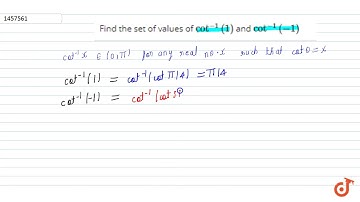 1457561
Find the set of values of cot⁻¹(1) and cot⁻¹(−1)
cot⁻¹x ∈ (0,π) for any real no. x such that cotθ = x
cot⁻¹(1) = cot⁻¹(cot π/4) = π/4
cot⁻¹(-1) = cot⁻¹(cot 3
doubtnut